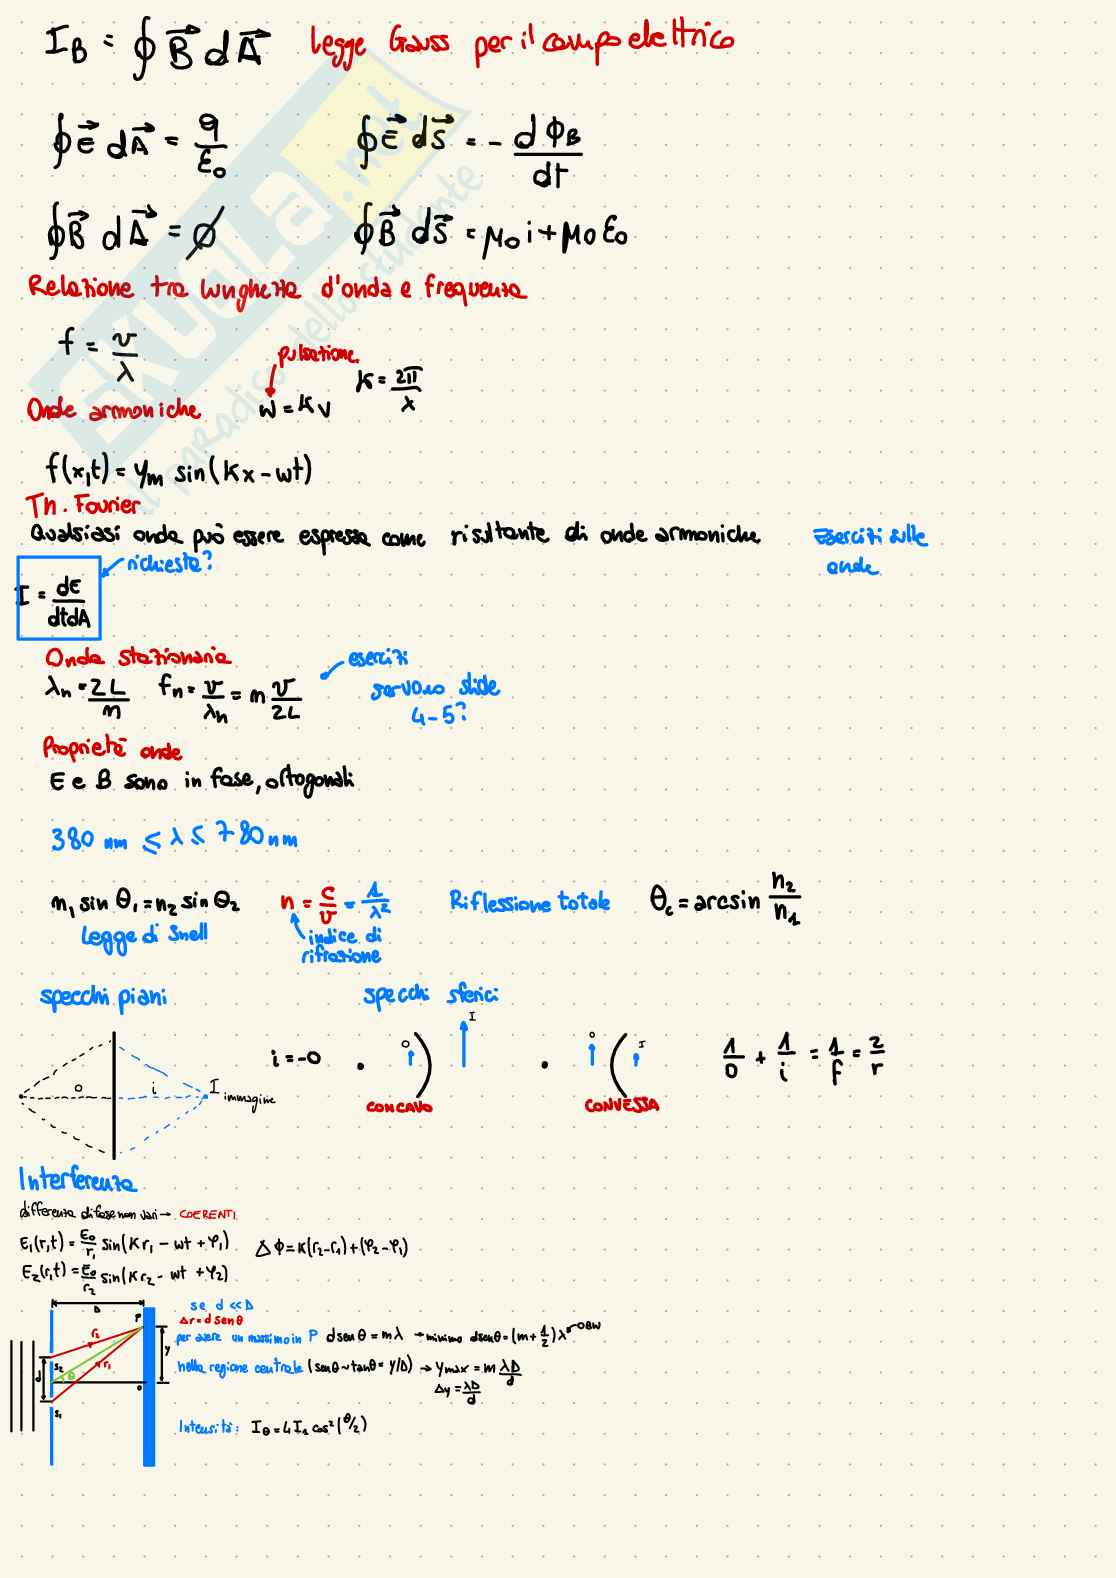 I_B = ∮ B⃗ dA⃗ Legge Gauss per il campo elettrico
∮ E⃗ dA⃗ = q/ε₀ ∮ E⃗ dS⃗ = - dϕ_B/dt
∮ B⃗ dA⃗ = ∅ ∮ B⃗ dS⃗ = μ₀ i + μ₀ ε₀
SKUOLA.net
il paradiso dello studente
Relazione tra lunghezza d'onda e frequenza
f = v/λ
pulsazione
Onde armoniche w = K v K = 2π/λ
f(x,t) = y_m sin(Kx - wt)
Th. Fourier
Qualsiasi onda può essere espressa come risultante di onde armoniche
Esercizi sulle
onde
richiesta?
I = dE/dtdA
Onda stazionaria
λ_n = 2L/n f_n = v/λ_n = n v/2L
esercizi
servono slide
4-5?
Proprietà onde
E e B sono in fase, ortogonali
380 nm ≤ λ ≤ 780 nm
n₁ sin θ₁ = n₂ sin θ₂ n = c/v = 1/λ² Riflessione totale θ_c = arcsin n₂/n₁
Legge di Snell
indice di
rifrazione
specchi piani specchi sferici
o i I immagine
i = -o
O I
CONCAVO
O I
CONVESSA
1/o + 1/i = 1/f = 2/r
Interferenza
differenza di fase non vari → COERENTI
E₁(r,t) = E₀/r₁ sin(Kr₁ - wt + φ₁) Δϕ = K(r₂-r₁) + (φ₂-φ₁)
E₂(r,t) = E₀/r₂ sin(Kr₂ - wt + φ₂)
D P r₂ r₁ y d S₂ θ O S₁
se d << D
Δr = d senθ
per avere un massimo in P d senθ = mλ → minimo d senθ = (m + 1/2) λ
nella regione centrale (senθ ~ tanθ = y/D) → y max = m λD/d
Δy = λD/d
Intensità: I_θ = 4 I₁ cos² (θ/2)